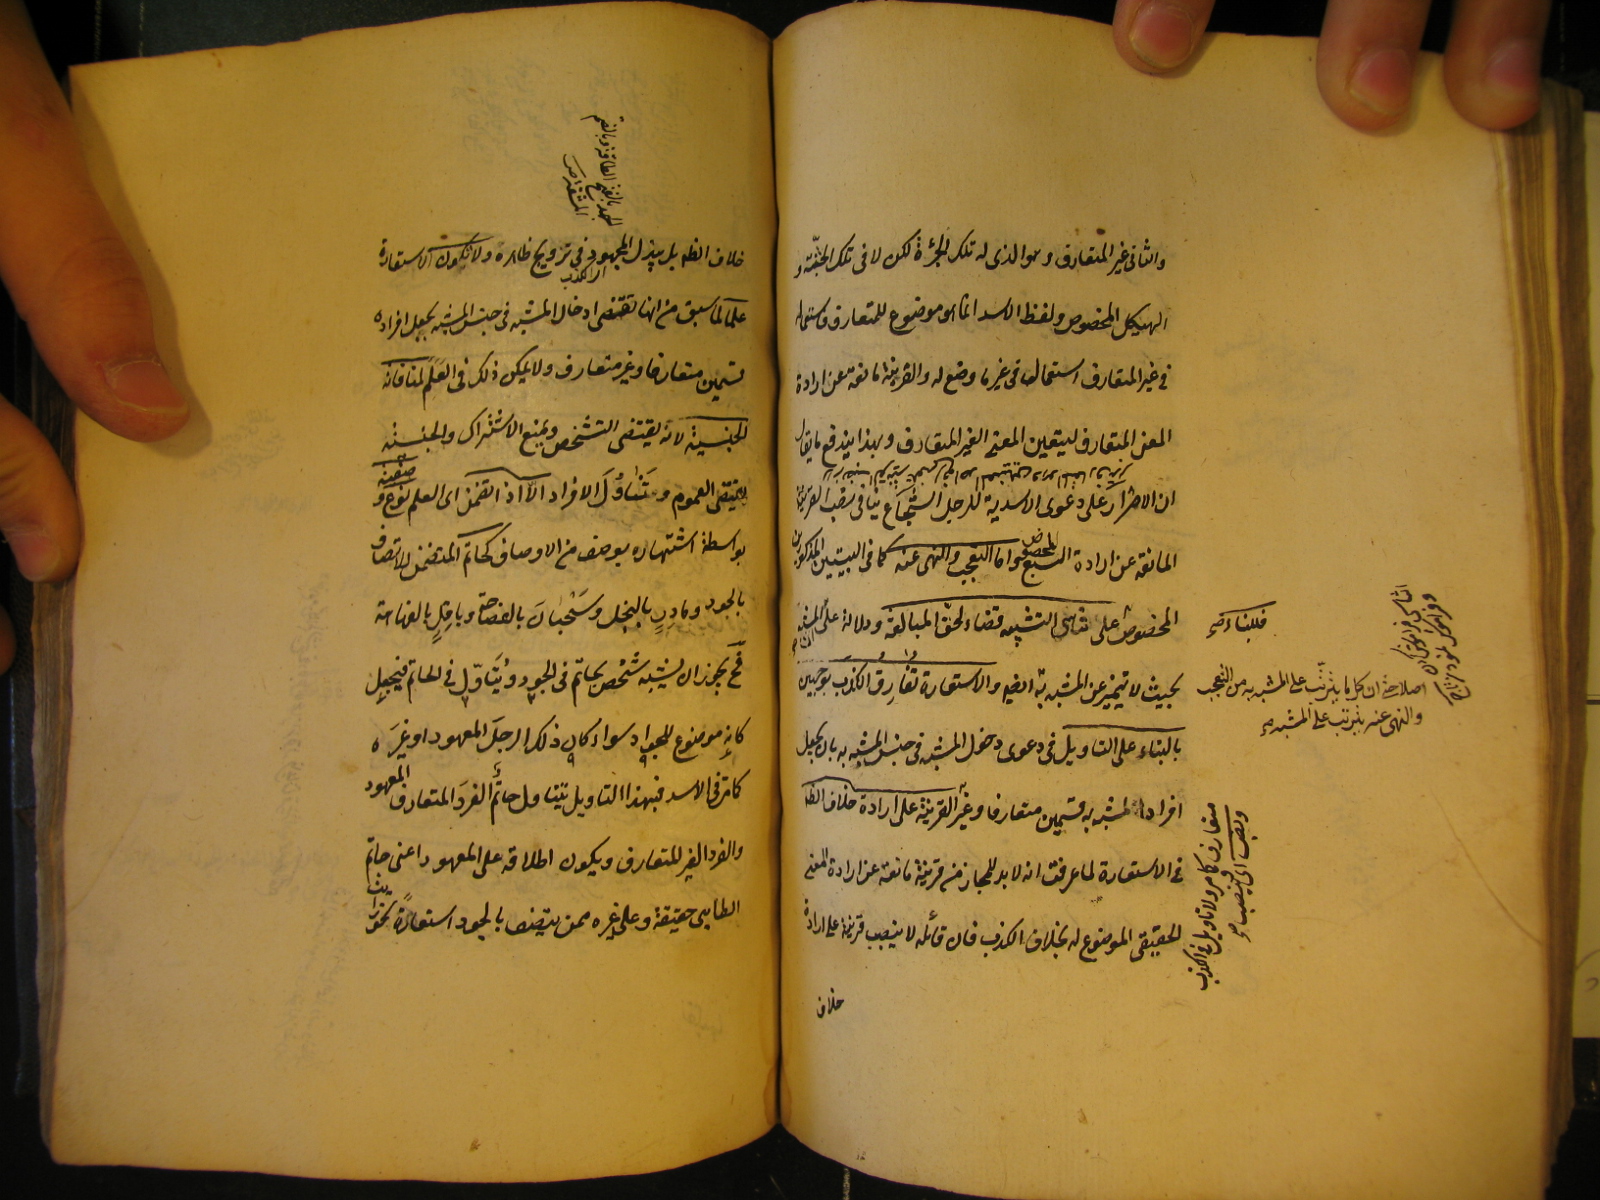 والثاني غير المتعارف وهو الذي له تلك الجرئة لكن لا في تلك الجثة و
الهيكل المخصوص ولفظ الاسد انما هو موضوع للمتعارف فاستعماله
في غير المتعارف استعمال في غير ما وضع له والقرينة مانعة عن ارادة
المعنى المتعارف ليتعين المعنى الغير المتعارف وبهذا يندفع ما يقال
ان الاصرار على دعوى الاسدية للرجل الشجاع ينافي نصب القرينة
المانعة عن ارادة السبع المخصوص واما التعجب والنهي عنه كما في البيتين المذكورين
فللبناء صح
المخصوص على تناسي التشبيه قضاء لحق المبالغة ودلالة على ان المشبه
بحيث لا يتميز عن المشبه به اصلا حتى ان كل ما يترتب على المشبه به من التعجب
والنهي عنه يترتب على المشبه
والاستعارة تفارق الكذب بوجهين
بالبناء على التاويل في دعوى دخول المشبه في جنس المشبه به بان يجعل
افراد المشبه به قسمين متعارفا وغير
متعارف كما مر ولا تاويل في الكذب
ونصب اى وبنصب صح
القرينة على ارادة خلاف الظاهر
في الاستعارة لما عرفت انه لا بد للمجاز من قرينة مانعة عن ارادة المعنى
الحقيقي الموضوع له بخلاف الكذب فان قائله لا ينصب قرينة على ارادة
خلاف
الجهد بالفتح الطاقة وبالضم
المشقة
خلاف الظاهر بل يبذل المجهود في ترويج ظاهره ولا تكون الاستعارة
اى الكذب
علما لما سبق من انها تقتضي ادخال المشبه في جنس المشبه به بجعل افراده
قسمين متعارفا وغير متعارف ولا يمكن ذلك في العلم لمنافاته
الجنسية لانه يقتضي التشخص ويمنع الاشتراك والجنسية
يقتضي العموم وتناول الافراد الا اذا تضمن اى العلم نوع وصفية
بواسطة اشتهاره بوصف من الاوصاف كحاتم المتضمن للاتصاف
بالجود ومادر بالبخل وسحبان بالفصاحة وباقل بالفهاهة
فح يجوز ان يشبه شخص بحاتم في الجود ويتاول في الحاتم فيجعل
كانه موضوع للجواد سواء كان ذلك الرجل المعهود او غيره
كما مر في الاسد فبهذا التاويل يتناول حاتم الفرد المتعارف المعهود
والفرد الغير المتعارف ويكون اطلاقه على المعهود اعني حاتم
الطايى حقيقة وعلى غيره ممن يتصف بالجود استعارة نحو رايت